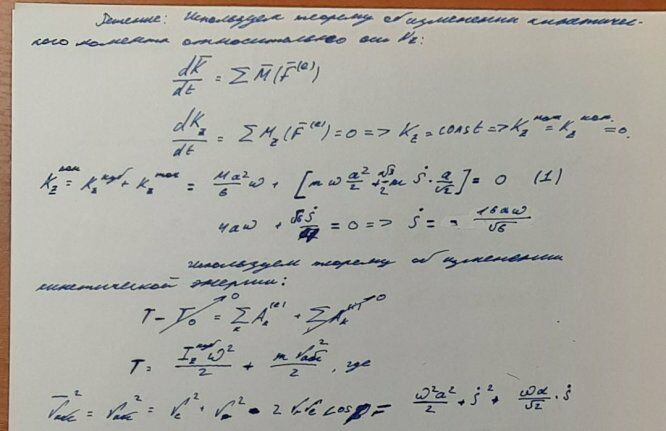 Решение: Используем теорему об изменении кинетичес-
кого момента относительно оси Nz:
dK̄/dt = Σ M̄(F̄⁽ᵉ⁾)
dKz/dt = Σ Mz(F̄⁽ᵉ⁾) = 0 => Kz = const => Kz нач = Kz кон = 0.
Kz кон = Kz куб + Kz точ = Ma²/6 ω + [m ω a²/2 + √3/2 m ṡ · a/√2] = 0 (1)
4aω + √6 ṡ = 0 => ṡ = - 16aω/√6
Используем теорему об изменении
кинетической энергии:
T - T₀ = Σ Aₖ⁽ᵉ⁾ + Σ Aₖ 0
T = Iz куб ω²/2 + m Vабс²/2, где
V̄абс² = Vабс² = Ve² + Vr² - 2 Vr Ve cos β = ω²a²/2 + ṡ² + ωa/√2 · ṡ